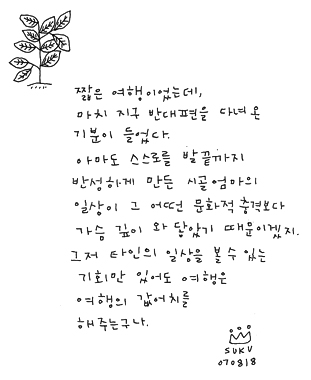 짧은 여행이었는데,
마치 지구 반대편을 다녀온
기분이 들었다.
아마도 스스로를 발끝까지
반성하게 만든 시골엄마의
일상이 그 어떤 문화적 충격보다
가슴 깊이 와 닿았기 때문이겠지.
그저 타인의 일상을 볼 수 있는
기회만 있어도 여행은
여행의 값어치를
해주는구나.
SUKU
070818